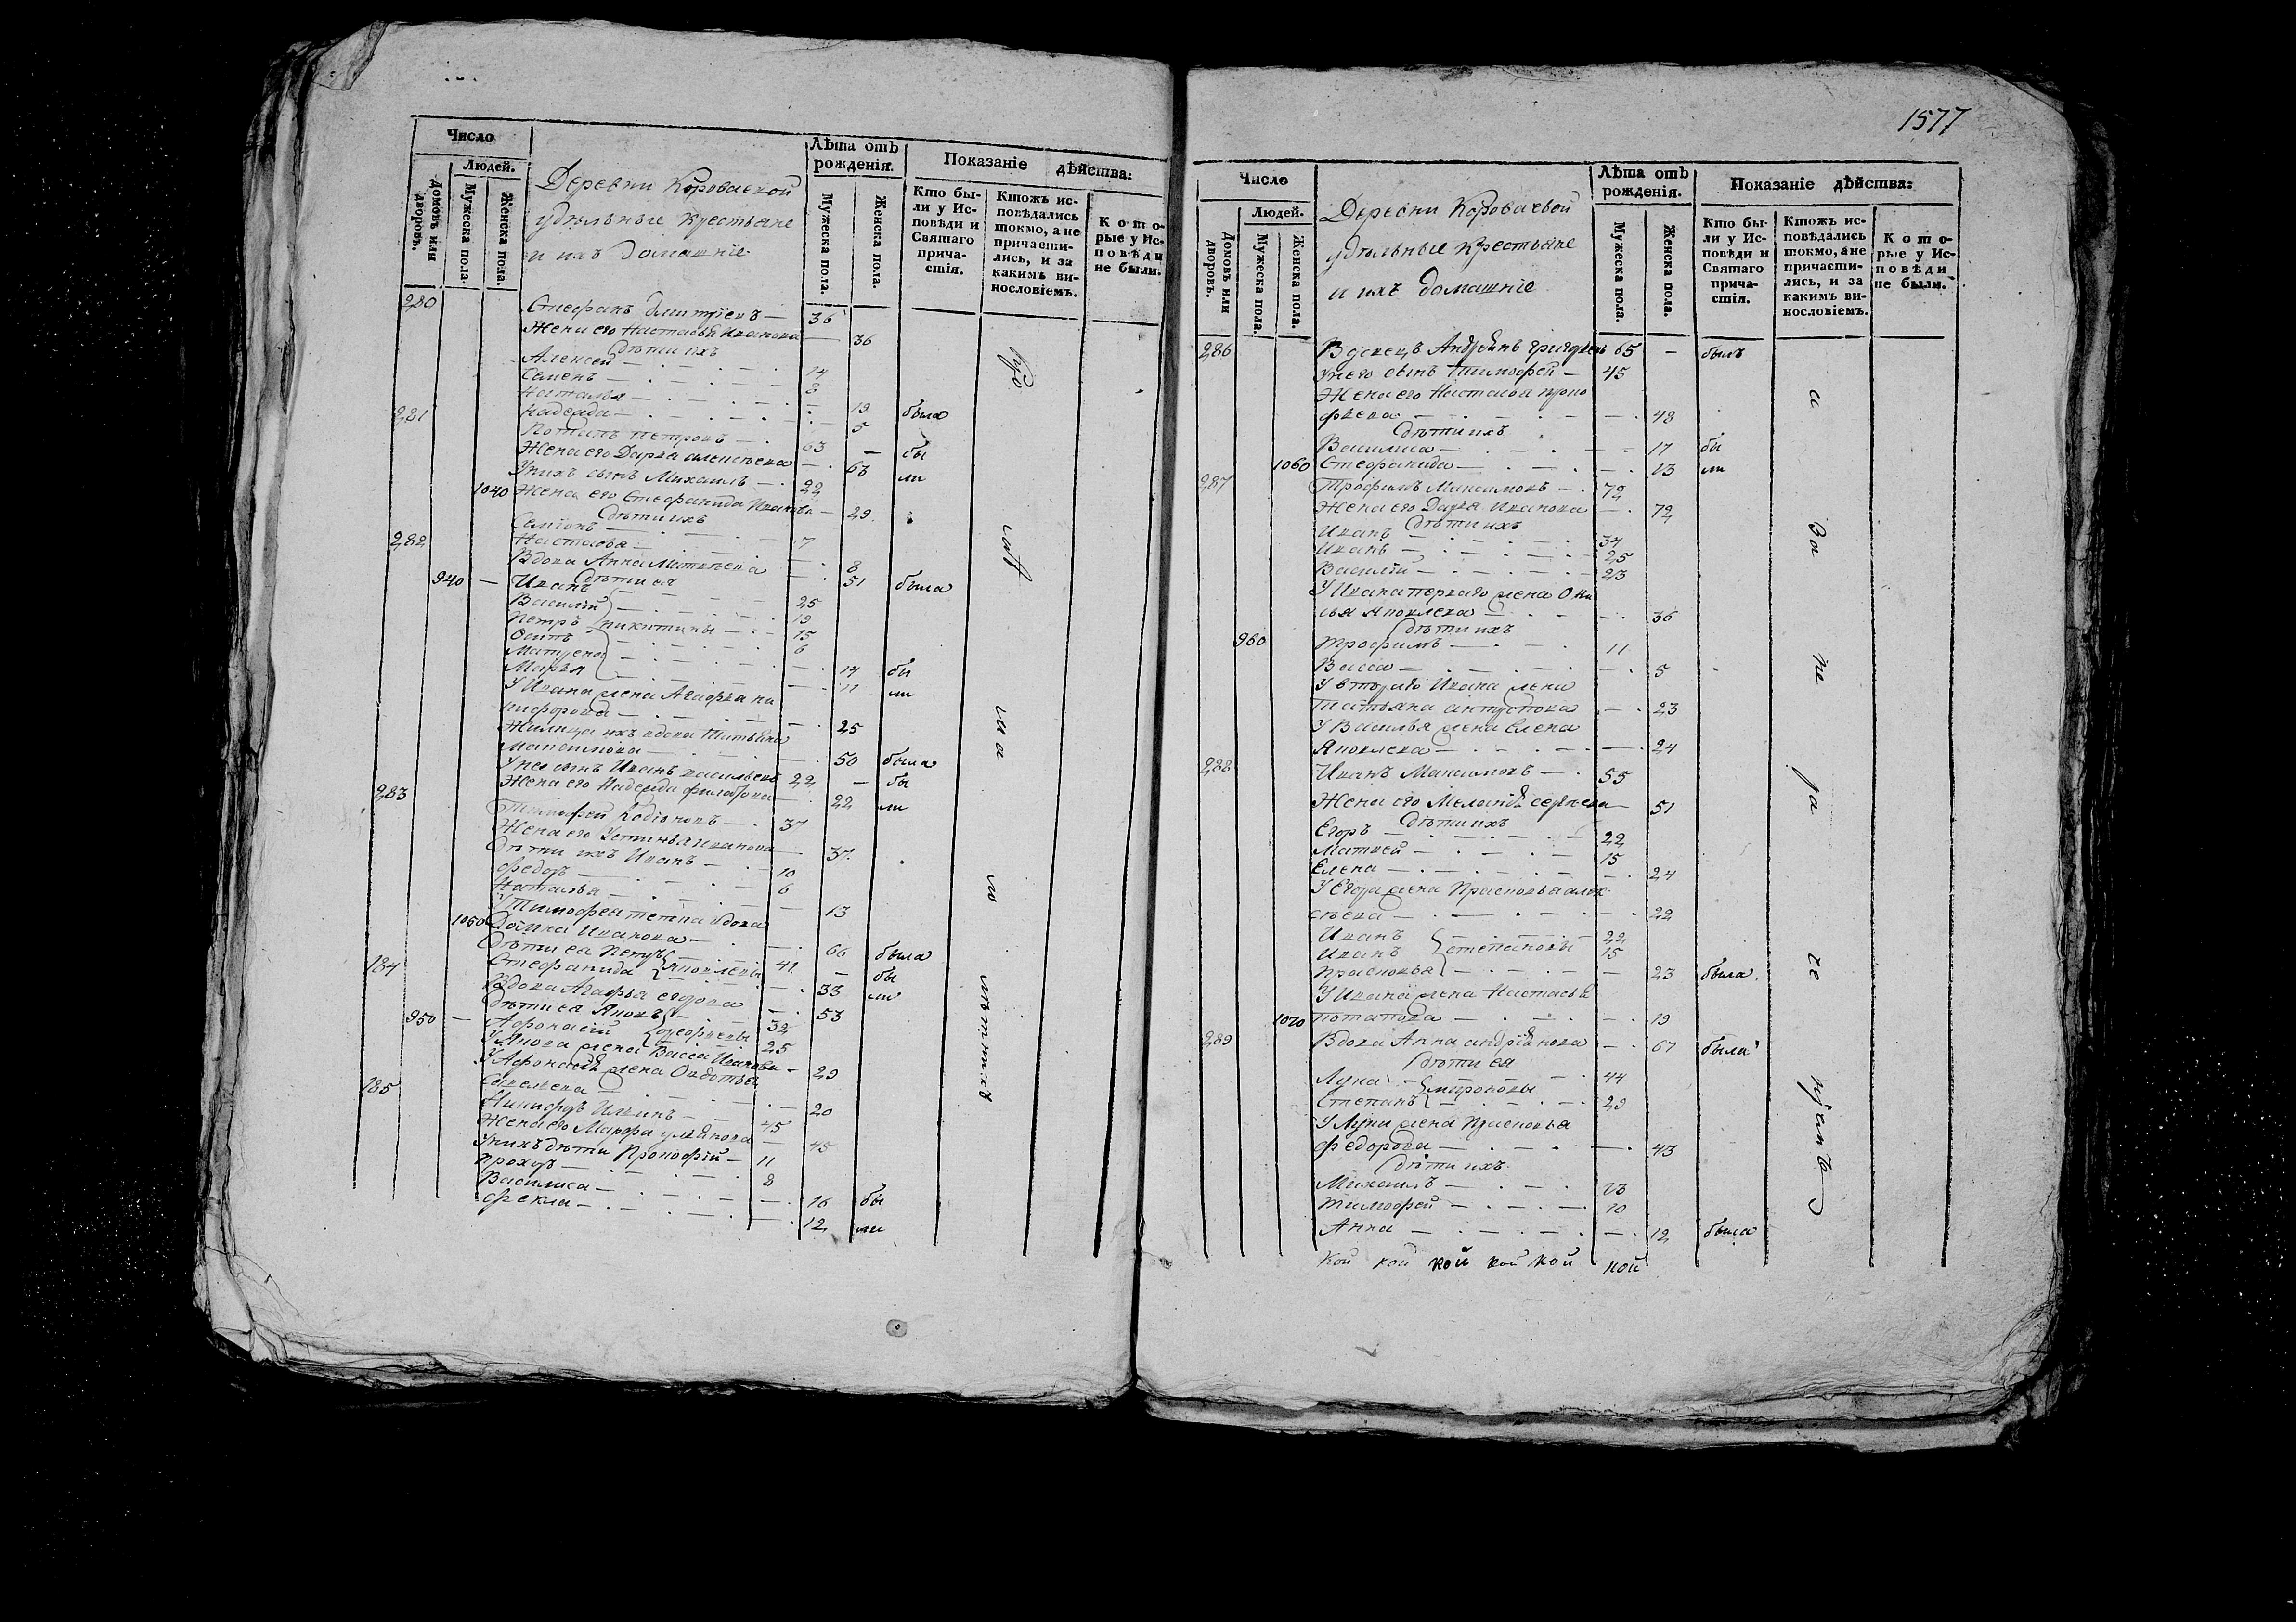 Число
Людей.
Домовъ или дворовъ.
Мужеска пола.
Женска пола.
Деревни Короваевой
удѣльные крестьяне
и ихъ домашніе
Лѣта отъ рожденія.
Мужеска пола.
Женска пола.
Показаніе дѣйства:
Кто были у Исповѣди и Святаго причастія.
Ктожъ исповѣдались токмо, а не причастились, и за какимъ винословіемъ.
Которые у Исповѣди не были.
280 Стефанъ Дмитріевъ — 36
Жена его Настасья Иванова — 36
Дѣти ихъ
Алексей — 14
Семенъ — 8
Наталья — 19 была
Надежда — 5
281 Потапъ Петровъ — 63 — бы
Жена его Дарья Алексѣева — 63 ли
У нихъ сынъ Михаилъ — 22
1040 Жена его Стефанида Иванова — 29
Дѣти ихъ
Семіонъ — 7
Настасья — 8
282 Вдова Анна Матвѣева — 51 была
Дѣти ея
940 — Иванъ — 25
Василій — 19
Петръ Никитины — 15
Осипъ — 6
Матрена — 14 бы
Марья — 11 ли
У Ивана жена Агафья Ни
кифорова — 25
Жилица ихъ вдова Татьяна
Максимова — 50 была
У нея сынъ Иванъ Васильевъ 22 — бы
Жена его Надежда — 22 ли
283 Тимофей Родіоновъ — 37
Жена его Устинья Иванова — 37
Дѣти ихъ Иванъ — 10
Федоръ — 6
Наталья — 13
У Тимофея тетка вдова
1050 Домна Иванова — 66 была
Дѣти ея Петръ — 41 — бы
Стефанида Яковлевы — 33 ли
184 Вдова Агафья Егорова — 53
Дѣти ея Яковъ — 32
950 — Афонасій — 25
У Якова жена Васса Иванова — 29
У Афонасья жена Овдотья
Савельева — 20
185 Никифоръ Ильинъ — 45
Жена его Марфа Ульянова — 45
У нихъ дѣти Прокофій — 11
Прохоръ — 8
Василиса — 16 бы
Фекла — 12 ли
1577
Число
Людей.
Домовъ или дворовъ.
Мужеска пола.
Женска пола.
Деревни Короваевой
удѣльные крестьяне
и ихъ домашніе
Лѣта отъ рожденія.
Мужеска пола.
Женска пола.
Показаніе дѣйства:
Кто были у Исповѣди и Святаго причастія.
Ктожъ исповѣдались токмо, а не причастились, и за какимъ винословіемъ.
Которые у Исповѣди не были.
286 Вдовецъ Андреянъ Григорьевъ 65 — былъ
У него сынъ Тимофей — 45
Жена его Настасья Проко
фьева — 48
Дѣти ихъ
Василиса — 17 бы
1060 Стефанида — 13 ли
287 Трофимъ Максимовъ — 72
Жена его Дарья Иванова — 72
Дѣти ихъ
Иванъ — 34
Иванъ — 25
Василій — 23
У Ивана перваго жена Они
сья Яковлева — 36
Дѣти ихъ
960 Трофимъ — 11
Васса — 5
У втораго Ивана жена
Татьяна — 23
У Василья жена Елена
Яковлева — 24
288 Иванъ Максимовъ — 55
Жена его Меланья Сергѣева — 51
Дѣти ихъ
Егоръ — 22
Матвей — 15
Елена — 24
У Егора жена Прасковья Алек
сѣева — 22
Иванъ — 22
Иванъ Степановы — 15
Прасковья — 23 была
У Ивана жена Настасья
1070 Потапова — 19
289 Вдова Анна Андріянова — 67 была
Дѣти ея
Лука — 44
Степанъ Мироновы — 29
У Луки жена Прасковья
Федорова — 43
Дѣти ихъ
Михаилъ — 13
Тимофей — 10
Анна — 12 была
кой кой кой кой кой кой